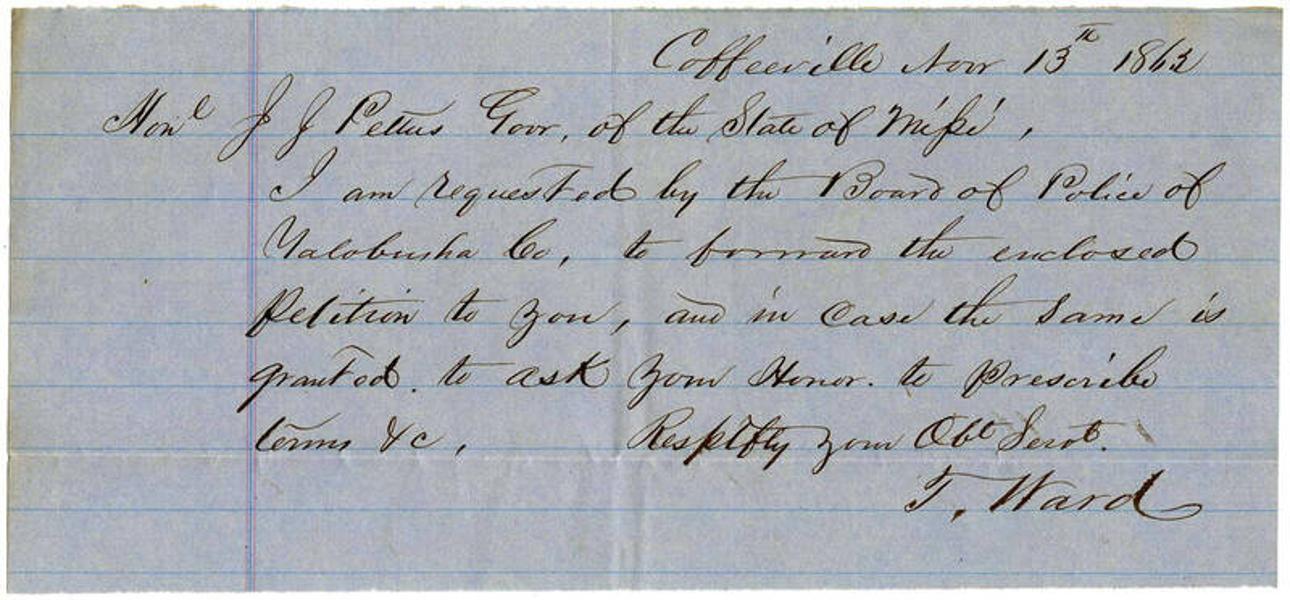 Coffeeville Novr 13th 1862
Honl J J Pettus Govr, of the State of Missi,
I am requested by the Board of Police of
Yalobusha Co, to forward the enclosed
Petition to you, and in Case the Same is
granted. to ask your Honor. to prescribe
terms &c, Resptfly your Obt Servt.
T. Ward